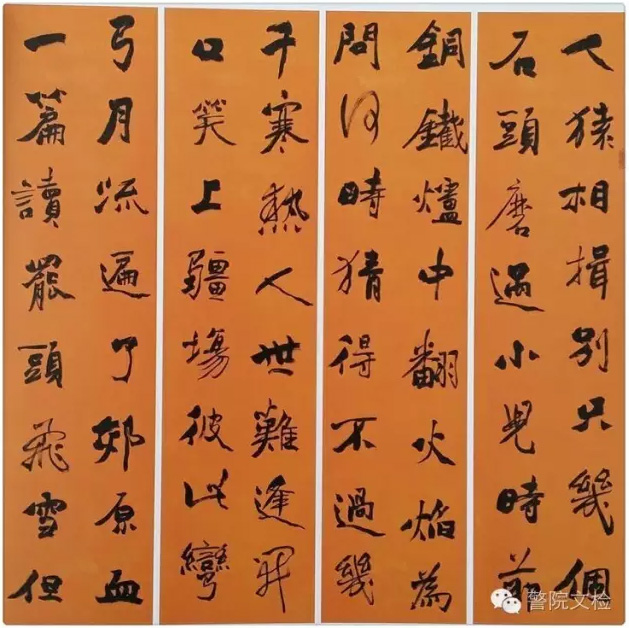 人猿相揖别只幾個
石頭磨過小兒時節
銅鐵爐中翻火焰為
問何時猜得不過幾
千寒熱人世難逢開
口笑上疆場彼此彎
弓月流遍了郊原血
一篇讀罷頭飛雪但
警院文检